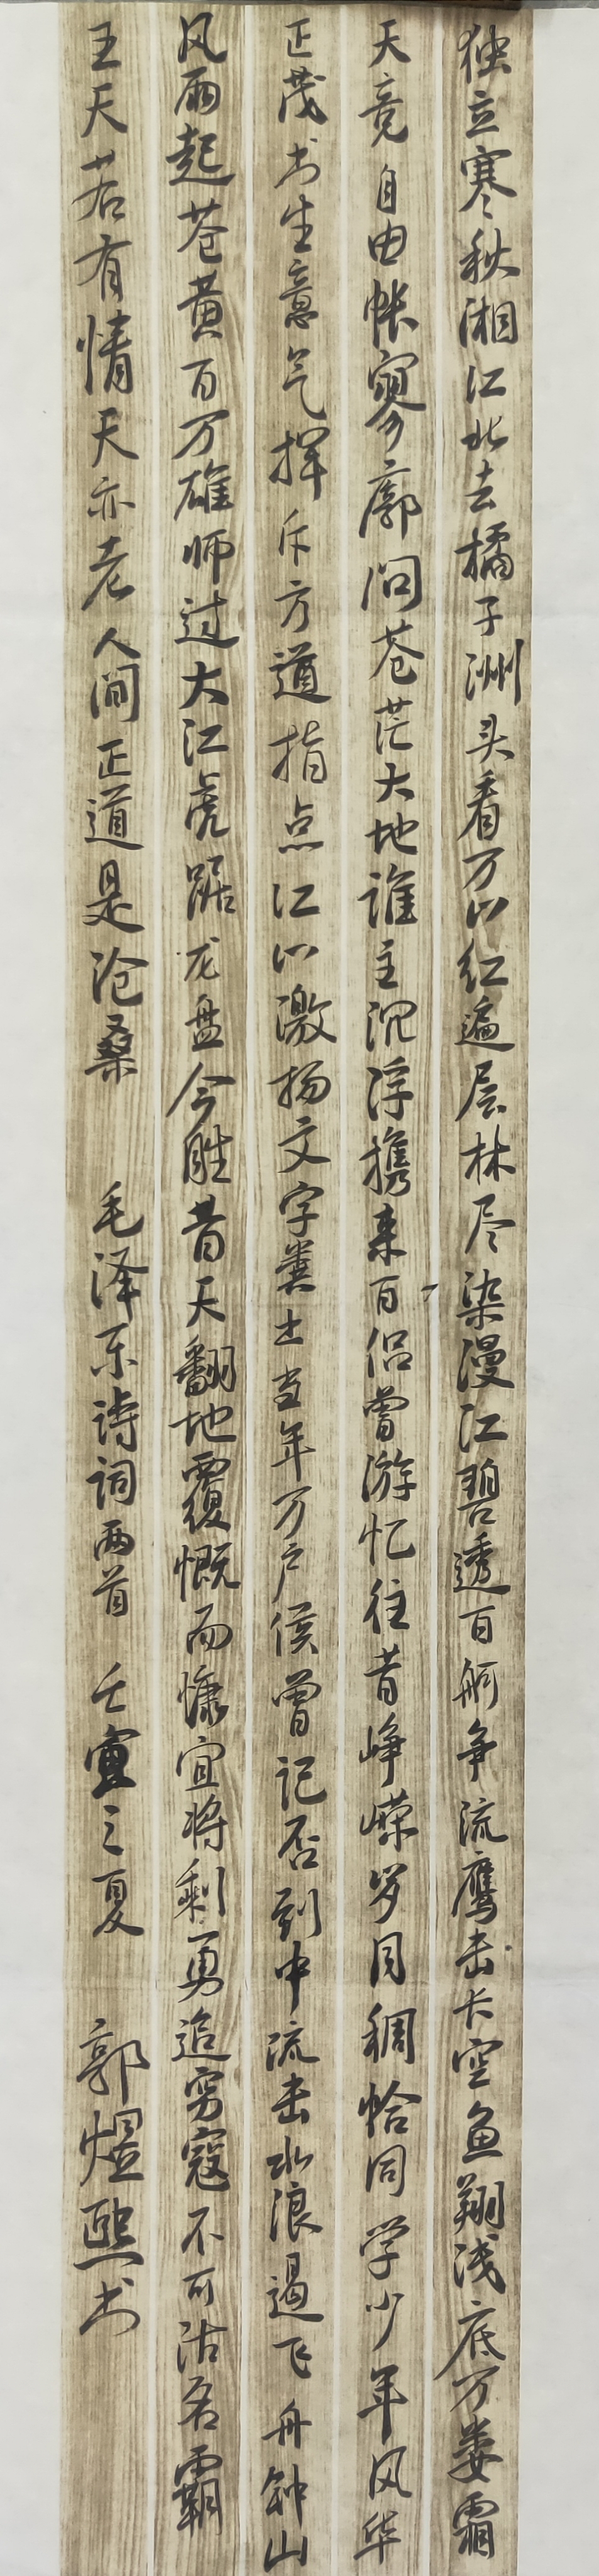 独立寒秋湘江北去橘子洲头看万山红遍层林尽染漫江碧透百舸争流鹰击长空鱼翔浅底万类霜
天竞自由怅寥廓问苍茫大地谁主沉浮携来百侣曾游忆往昔峥嵘岁月稠恰同学少年风华
正茂书生意气挥斥方遒指点江山激扬文字粪土当年万户侯曾记否到中流击水浪遏飞舟钟山
风雨起苍黄百万雄师过大江虎踞龙盘今胜昔天翻地覆慨而慷宜将剩勇追穷寇不可沽名霸
王天若有情天亦老人间正道是沧桑 毛泽东诗词两首 壬寅之夏 郭煜熙书